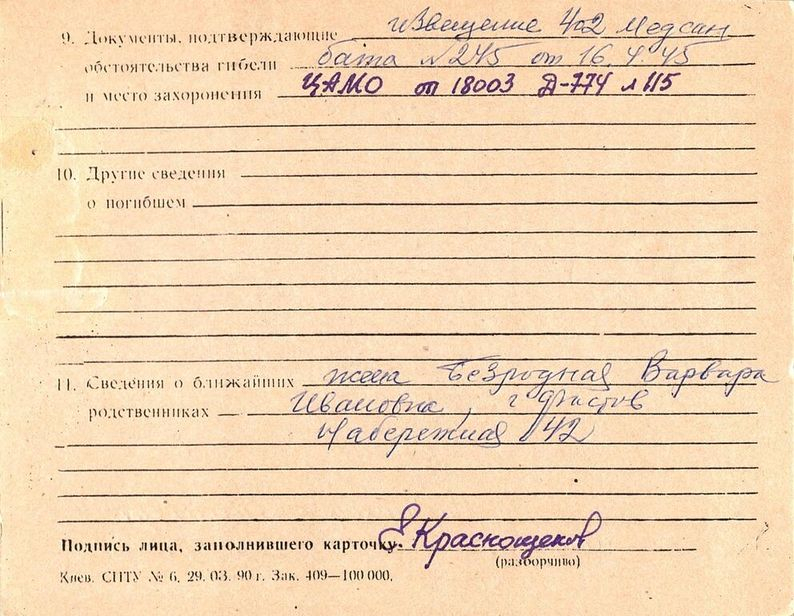 9. Документы, подтверждающие извещение 402 Медсан
обстоятельства гибели бата №245 от 16.4.45
и место захоронения ЦАМО оп 18003 Д-774 л 115
10. Другие сведения
о погибшем
11. Сведения о ближайших жена Безродная Варвара
родственниках Ивановна, г Фастов
Набережная 42
Подпись лица, заполнившего карточку. Краснощеков
(разборчиво)
Киев. СПТУ № 6. 29. 03. 90 г. Зак. 409—100 000.